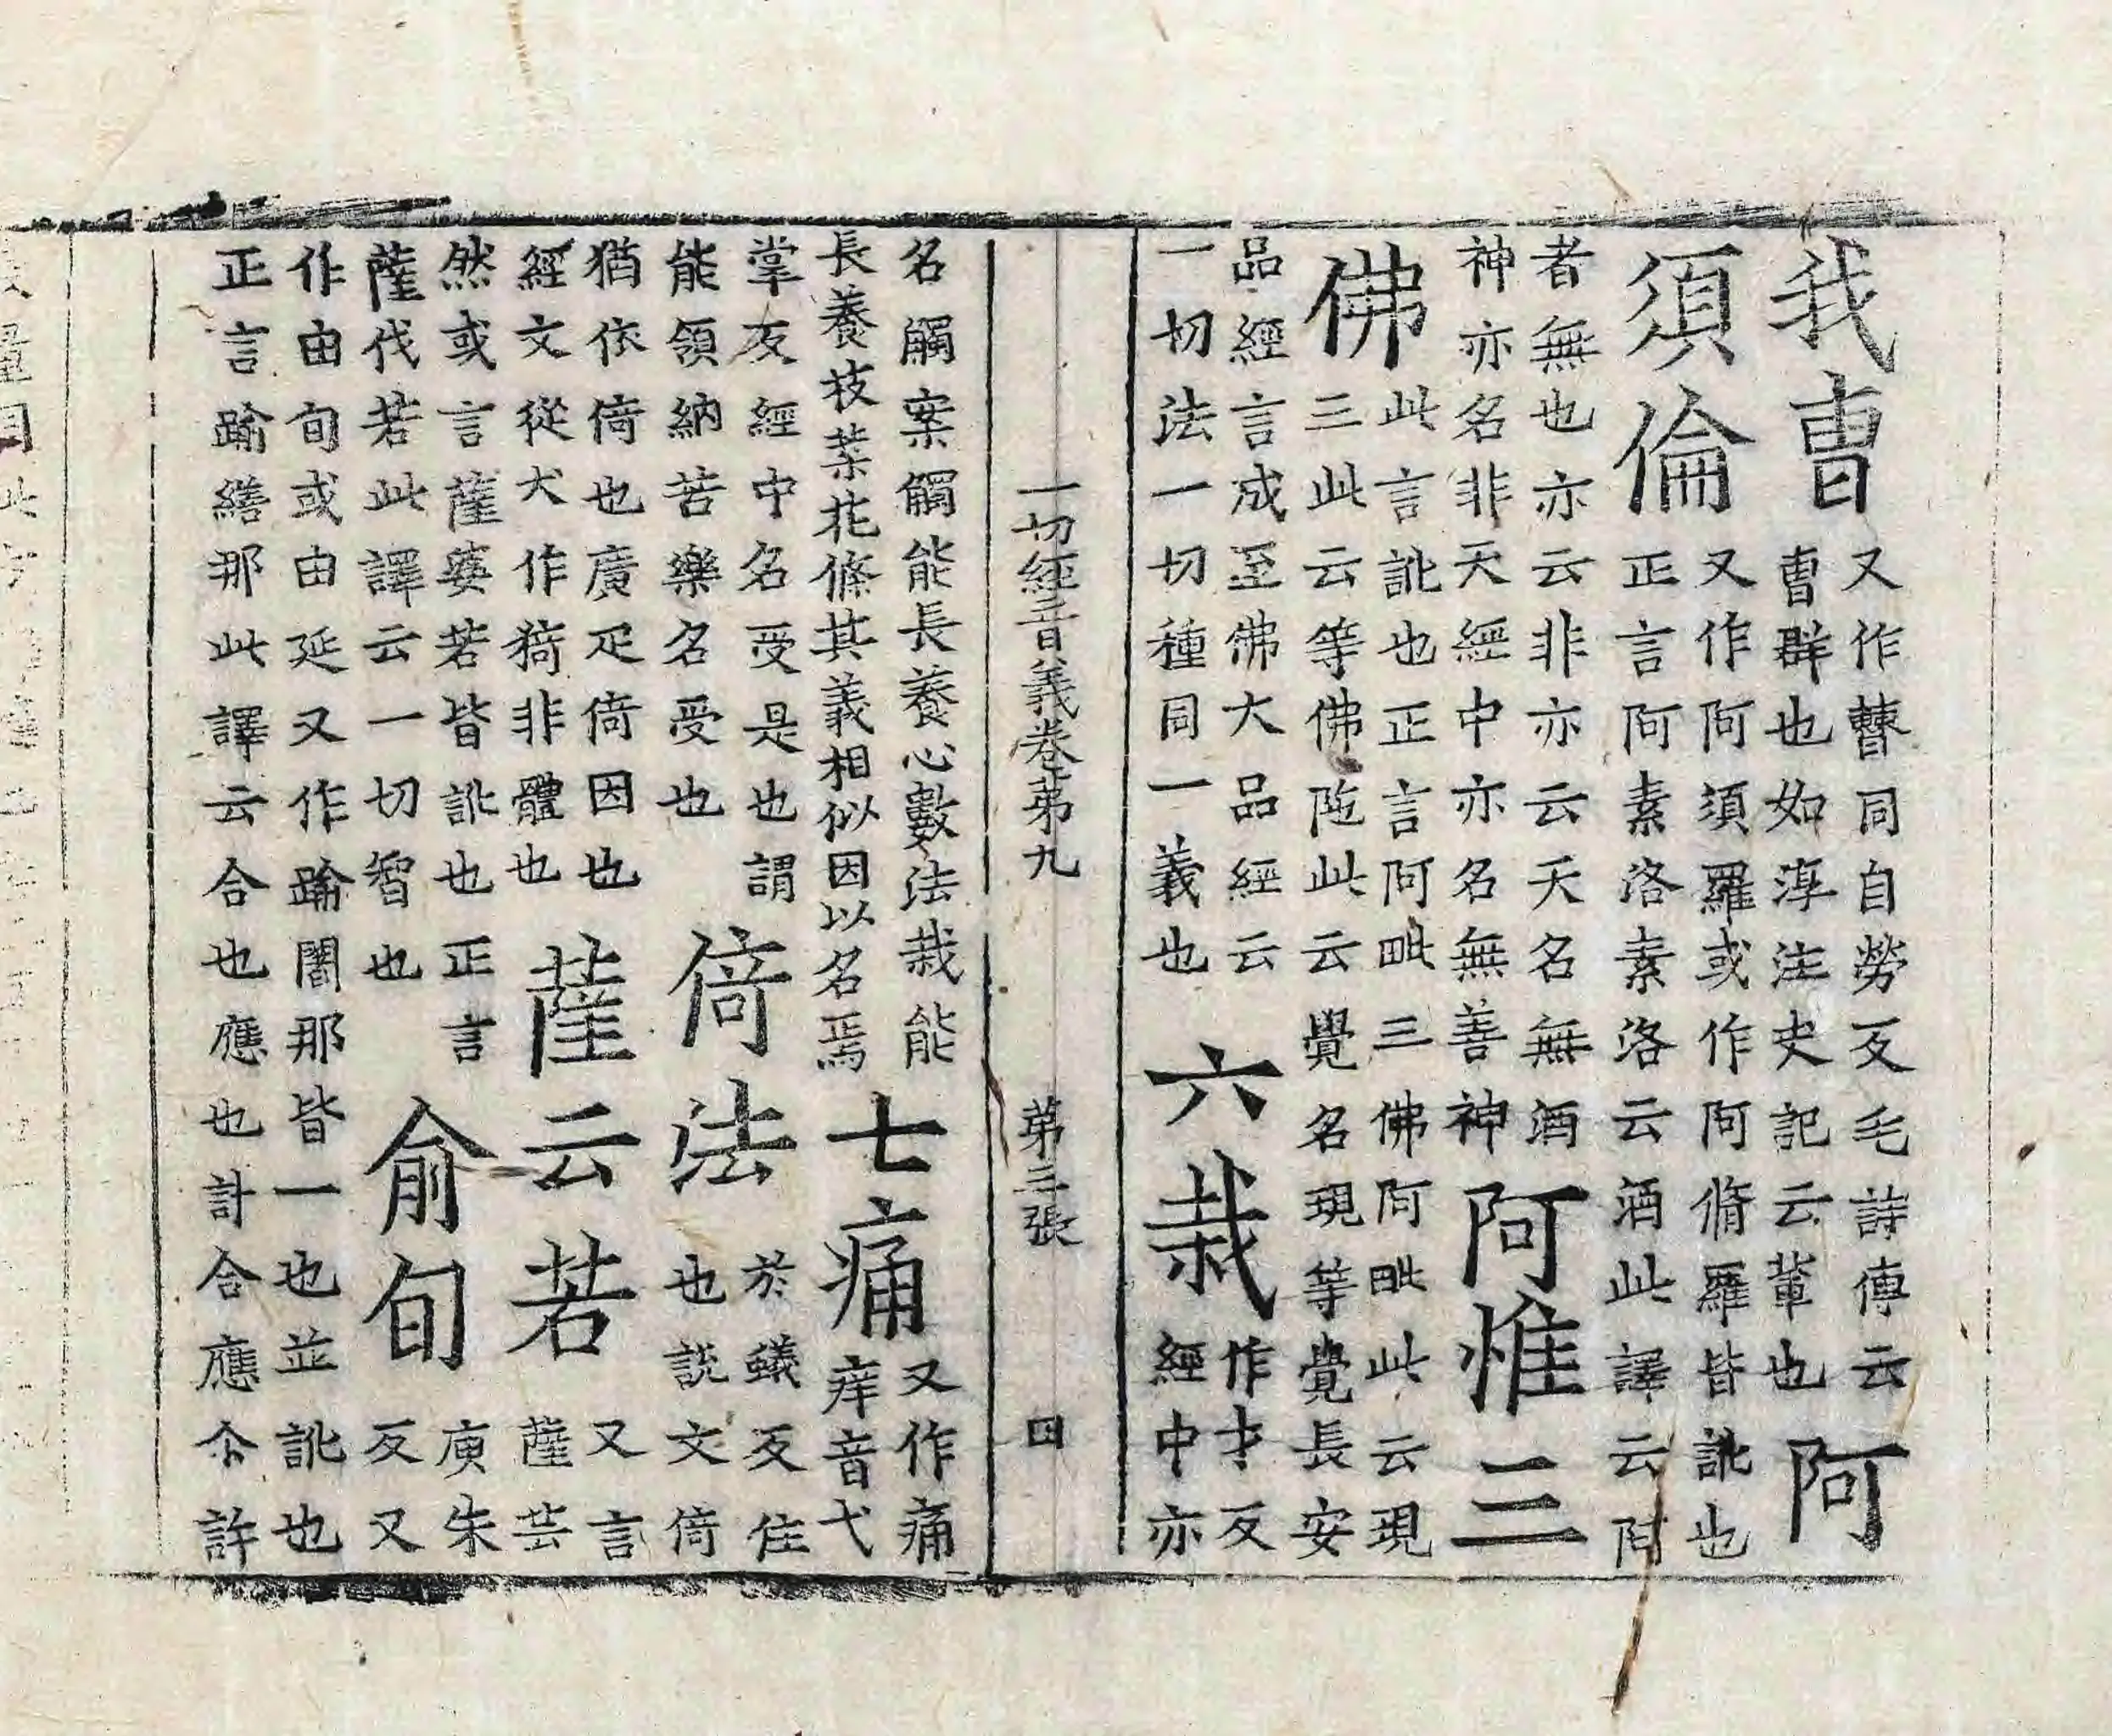 我曺
又作𣍘同自勞反毛詩傳云
曺群也如淳注史記云軰也
阿
須倫
又作阿須羅或作阿脩羅皆訛也
正言阿素洛素洛云酒此譯云阿
者無也亦云非亦云天名無酒
神亦名非天經中亦名無善神
阿惟三
佛
此言訛也正言阿毗三佛阿毗此云現
三此云等佛陁此云覺名現等覺長安
品經言成至佛大品經云
一切法一切種同一義也
六栽
作才反
經中亦
一切經音義卷苐九 苐三張 四
名觸案觸能長養心數法栽能
長養枝葉花條其義相似因以名焉
七痛
又作痛
痒音弋
掌反經中名受是也謂
能領納苦樂名受也
倚法
於蟻反住
也說文倚
猶依倚也廣疋倚因也
經文從犬作猗非體也
薩云若
又言
薩芸
然或言薩婆若皆訛也正言
薩伐若此譯云一切智也
俞旬
庾朱
反又
作由旬或由延又作踰闍那皆一也並訛也
正言踰繕那此譯云合也應也計合應尒許